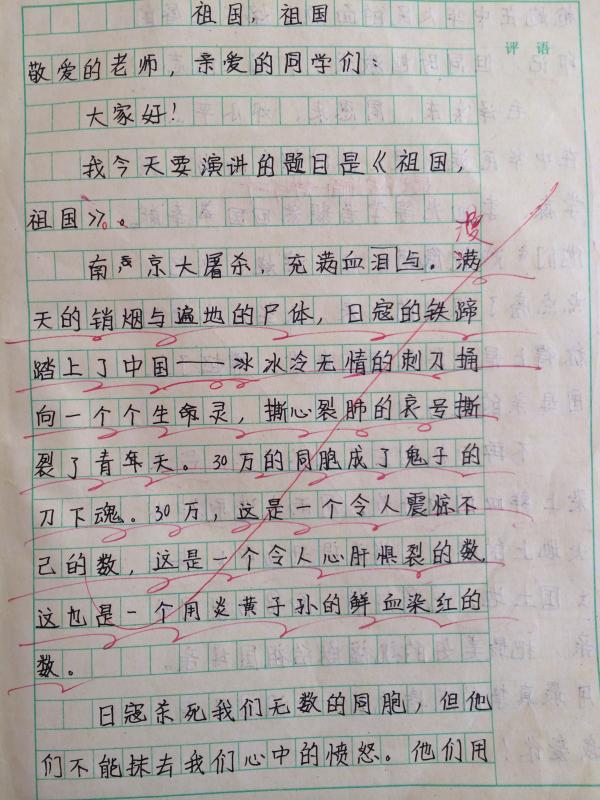 祖国,祖国
评语
敬爱的老师,亲爱的同学们:
大家好!
我今天要演讲的题目是《祖国,
祖国》。
漫
南京大屠杀,充满血泪与.满
天的销烟与遍地的尸体,日寇的铁蹄
踏上了中国——冰冷无情的刺刀捅
向一个个生命灵,撕心裂肺的哀号撕
裂了青年天。30万的同胞成了鬼子的
刀下魂。30万,这是一个令人震惊不
己的数,这是一个令人心肝惧裂的数,
这也是一个用炎黄子孙的鲜血染红的
数。
日寇杀死我们无数的同胞,但他
们不能抹去我们心中的愤怒。他们用